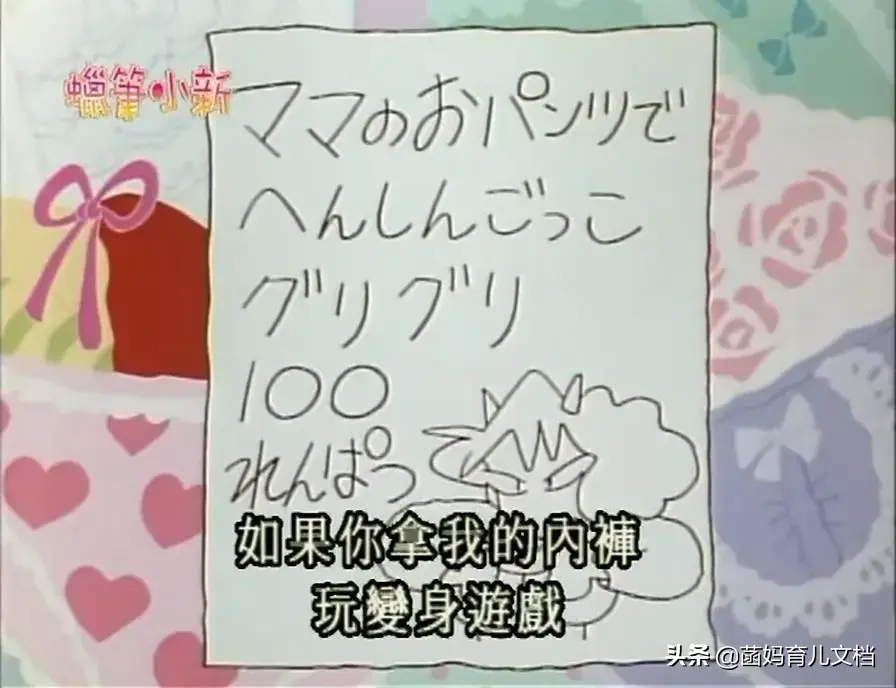 蠟筆小新
ママのおパンツで
へんしんごっこ
グリグリ
100
れんぱつ
如果你拿我的內褲
玩變身遊戲
头条 @菡妈育儿文档